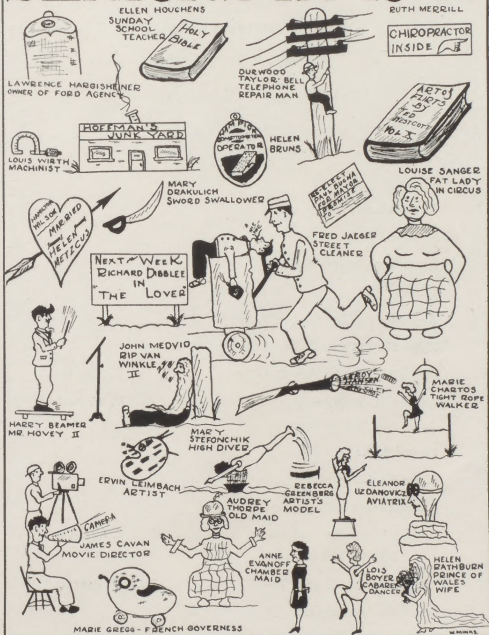 ELLEN HOUCHENS
SUNDAY
SCHOOL
TEACHER
HOLY
BIBLE
RUTH MERRILL
CHIROPRACTOR
INSIDE
LAWRENCE HARGISHEINER
OWNER OF FORD AGENCY
DURWOOD
TAYLOR-BELL
TELEPHONE
REPAIR MAN
ART OF
FLIRTS
BY
WESTCOTT
VOL X
HOFFMAN'S
JUNK YARD
LOUIS WIRTH
MACHINIST
OPERATOR
HELEN
BRUNS
LOUISE SANGER
FAT LADY
IN CIRCUS
MARY
DRAKULICH
SWORD SWALLOWER
WILSON
MARRIED
HELEN
METZGUS
FOR MAYOR
FRED JAEGER
STREET
CLEANER
NEXT WEEK
RICHARD DIBBLEE
IN
"THE LOVER"
JOHN MEDVID
RIP VAN
WINKLE
II
HARRY BEAMER
MR. HOVEY II
LEROY
HANSEN
MARIE
CHARTOS
TIGHT ROPE
WALKER
MARY
STEFONCHIK
HIGH DIVER
ERVIN LEIMBACH
ARTIST
REBECCA
GREENBERG
ARTIST'S
MODEL
ELEANOR
UZDANOVICZ
AVIATRIX
AUDREY
THORPE
OLD MAID
CAMERA
JAMES CAVAN
MOVIE DIRECTOR
ANNE
EVANOFF
CHAMBER
MAID
LOIS
BOYER
CABARET
DANCER
HELEN
RATHBURN
PRINCE OF
WALES
WIFE
MARIE GREGG - FRENCH GOVERNESS
W. MINKS